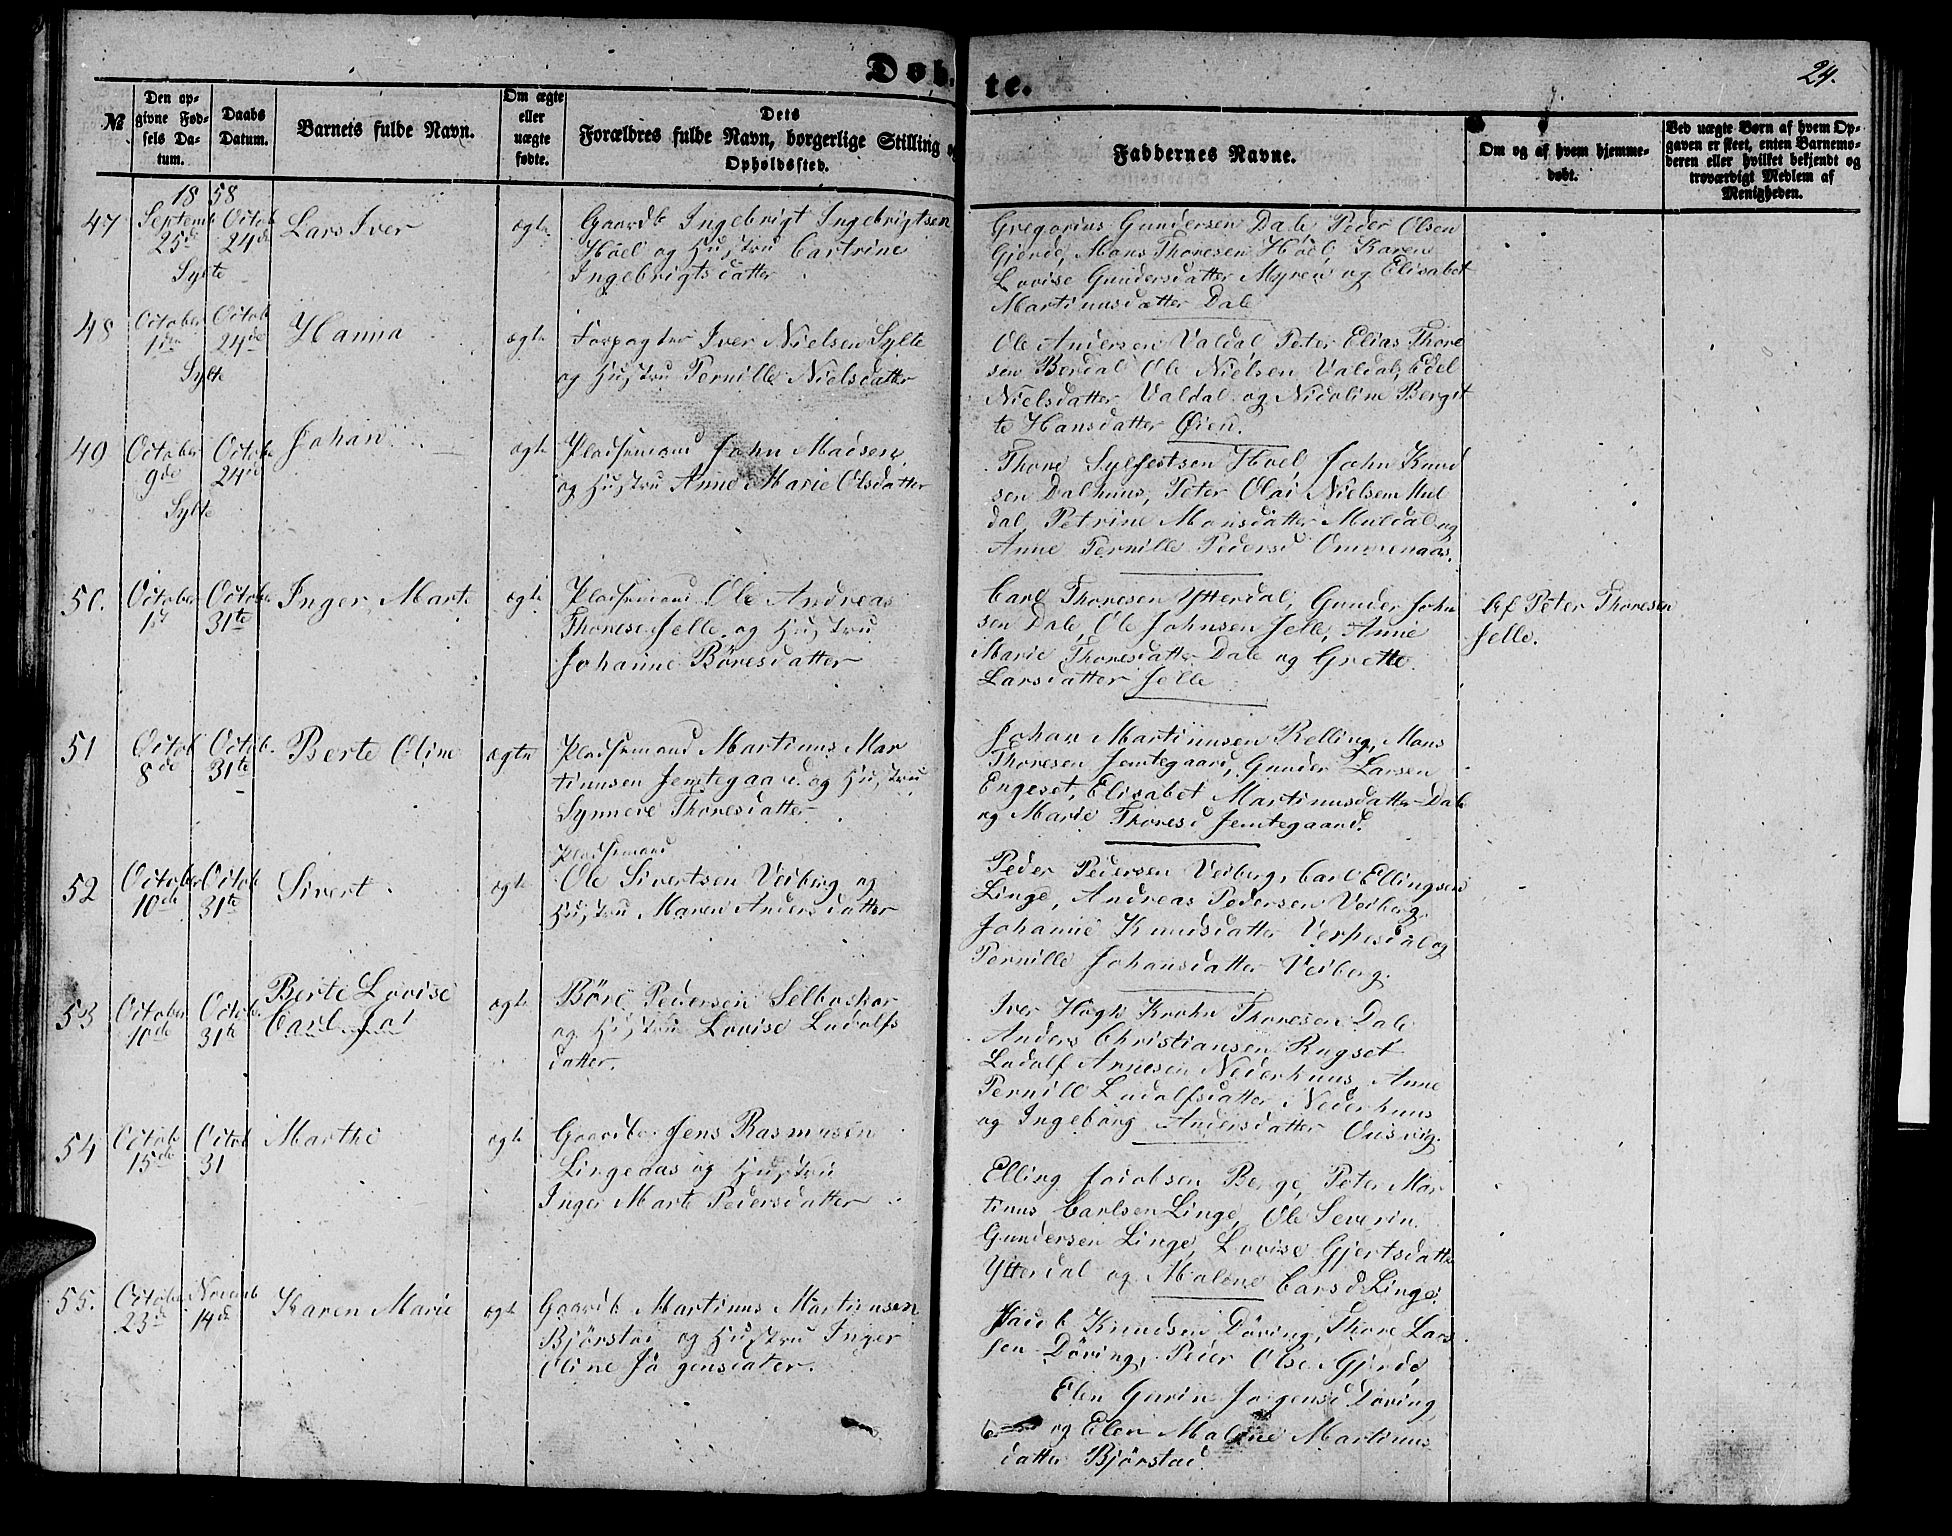 Døb-te.
24.
№
Den op-
givne Fød-
sels Da-
tum.
Daabs
Datum.
Barnets fulde Navn.
Om ægte
eller
uægte
fødte.
Dets
Forældres fulde Navn, borgerlige Stilling
Opholdssted.
Faddernes Navne.
Om og af hvem hjemme-
døbt.
Ved uægte Børn af hvem Op-
gaven er skeet, enten Barnemo-
deren eller hvilket bekjendt og
troværdigt Medlem af
Menigheden.
1858
47
Septemb
25de
Sylte
Octob
24de
Lars Iver
ægte
Gaardb Ingebrigt Ingebrigtsen
Hoel og Hustru Cartrine
Ingebrigtsdatter
Gregorius Gundersen Dale, Peder Olsen
Gjerde, Mons Thoresen Hoel, Karen
Lovise Gundersdatter Myren og Elisabet
Martinusdatter Dale
48
October
1de
Sylte
Octob
24de
Hanna
ægte
Forpagter Iver Nielsen Sylte
og Hustru Pernille Nielsdatter
Ole Andersen Valdal Peter Elias Thore
sen Berdal Ole Nielsen Valdal, Edel
Nielsdatter Valdal og Nicoline Bergit
te Hansdatter Øien.
49
October
9de
Sylte
Octobe
24de
Johan
ægte
Pladsmand John Madsen
og Hustru Anne Marie Olsdatter
Thore Sylfestsen Hoel John Knud
sen Dalhuus, Peter Olai Nielsen Mul
dal, Petrine Monsdatter Muldal og
Anne Pernille Pedersd Ommenaas.
50.
October
1st
Octobe
31te
Inger Marte
ægte
Pladsmand Ole Andreas
Thorese Selle og Hustru
JohanneBöresdatter
Carl Thoresen Ytterdal, Gunder John
sen Dale, Ole Johnsen Selle, Anne
Marie Thoresdatter Dale og Grette
Larsdatter Selle
Af Peter Thoresen
Selle.
51
Octob
8de
Octob.
31te
Berte Oline
ægte
Pladsmand Martinus Mar
tinusen Jemtegaard og Hustru
Synneve Thoresdatter
Johan Martinusen Relling, Mons
Thoresen Jemtegaard, Gunder Larsen
Engeset, Elisabet Martinusdatter Dale
og Marie Thoresd Jemtegaard.
52
October
10de
Octob
31te
Sivert
ægte
Pladsmand
Ole Sivertsen Veiberg og
Hustru Maren Andersdatter
Peder Pedersen Veiberg, Carl Ellingsen
Linge, Andreas Pedersen Veiberg
Johanne Knudsdatter Verpesdal og
Pernille Johansdatter Veiberg.
53
October
10de
Octobe.
31te
Berte Lovise
ægte
Böre Pedersen Selboskar
og Hustru Lovise Ludolfs
datter.
Iver Høgh Krohn Thoresen Dale
Anders Christiansen Rugset
Ludolf Arnesen Nederhuus, Anne
Pernille Ludolfsdatter Nederhuus
og Ingeborg Andersdatter Onsvig.
54
Octob
15de
Octob
31
Marthe
ægte
Gaardbr Jens Rasmusen
Lingeaas og Hustru
Inger Marte Pedersdatter
Elling Jacobsen Berge, Peter Mar
tinus Carlsen Linge, Ole Severin
Gundersen Linge, Lovise Gjertsdatte
Ytterdal og Malene Carsd Linge.
55.
October
23de
Novemb
14de
Karen Marie
ægte
Gaardb Martinus Martinusen
Bjørstad og Hustru Inger
Oline Jörgensdater.
Jacob Knudsen Döving, Thore Lars
sen Döving, Peder Olse Gjerde,
Elen Gurine Jørgensd Döving,
og Elen Maline Martinus
datter Bjørstad.